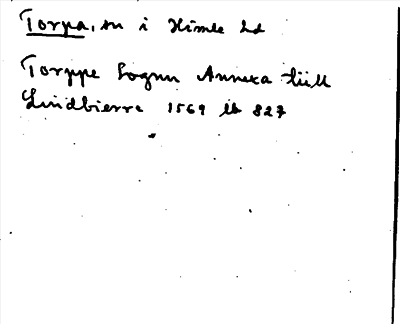 Torpa, sn i Himle hd
Torppe Sognn Annexa tiill
Lindbierre 1569 lb 827